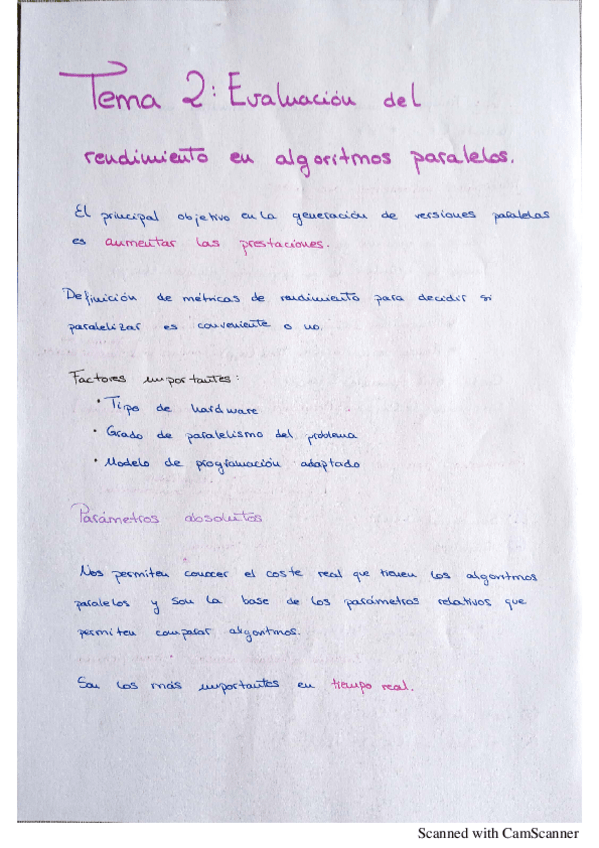 Tema 2: Evaluación del
rendimiento en algoritmos paralelos.
El principal objetivo en la generación de versiones paralelas
es aumentar las prestaciones.
Definición de métricas de rendimiento para decidir si
paralelizar es conveniente o no.
Factores importantes:
• Tipo de hardware
• Grado de paralelismo del problema
• Modelo de programación adaptado
Parámetros absolutos
Nos permiten conocer el coste real que tienen los algoritmos
paralelos y son la base de los parámetros relativos que
permiten comparar algoritmos.
Son los más importantes en tiempo real.
Scanned with CamScanner